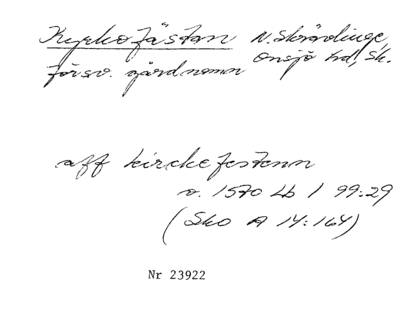 Kyrkofästan N. Skrävlinge,
Onsjö hd, Sk.
försv. gårdnamn
aff kirckefestenn
o. 1570 Lb 1 99:29
(Sko A 14:164)
Nr 23922